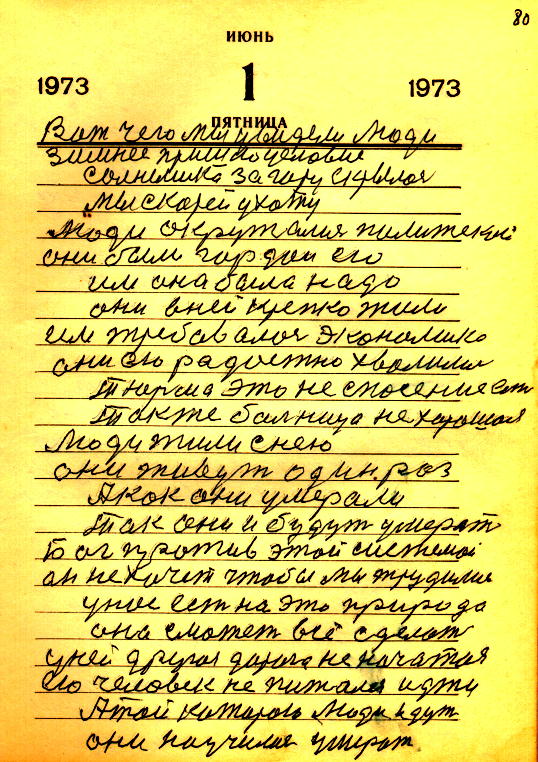 80
ИЮНЬ
1973 1 1973
ПЯТНИЦА
Вот чего мы увидели Люди
Зимнее пришло условие
солнышка за гору скрылос
мы скорей у хату
Люди окружалися политекой
они были гордои его
им она была надо
они вней крепко жили
им требовалос экономико
они ею радостно хвалилис
Тюрма это не спосение
Также балница не хорошоя
Люди жили снею
они живут один раз
А кок они умерали
Так они и будут умерат
Бог против этой системой
он не хочет чтобы мы трудилис
унос ест на это природа
она сможет всё сделат
уней другоя дорога не начатоя
Ею человек не питался идти
А той которою Люди идут
они научилис умерат